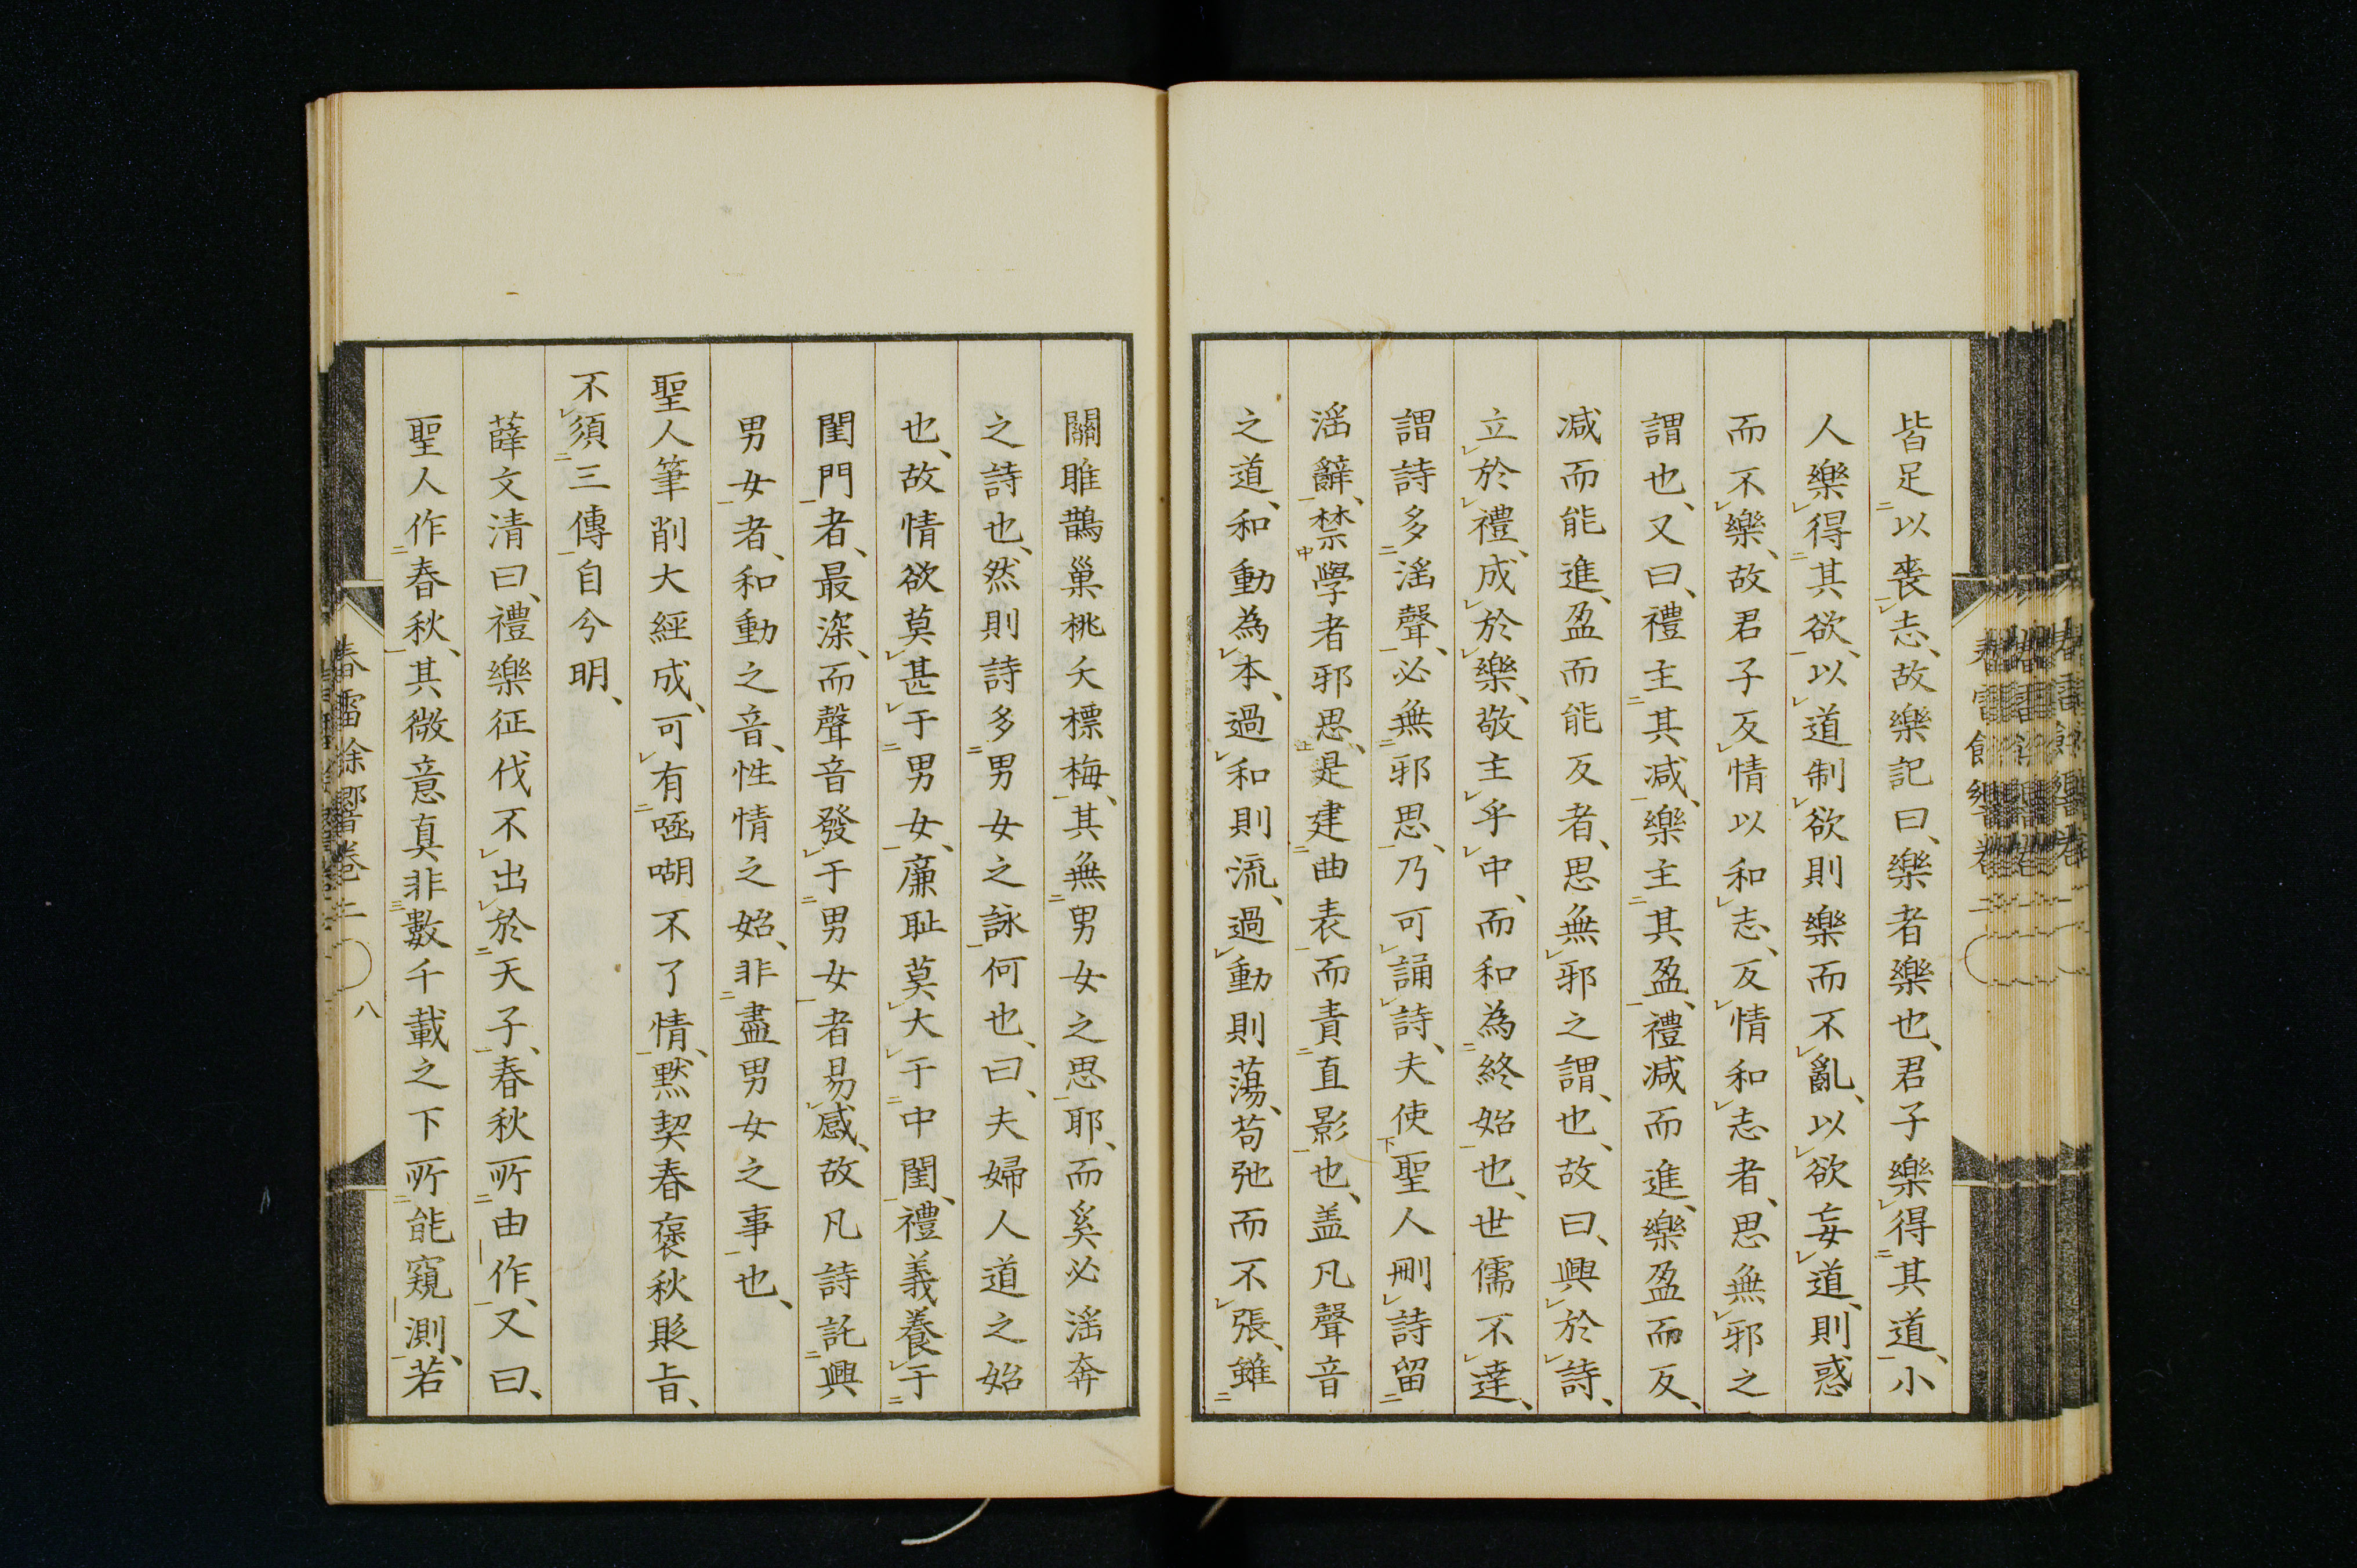 皆足以喪志、故樂記曰、樂者樂也、君子樂得其道、小
人樂得其欲、以道制欲則樂而不亂、以欲妄道、則惑
而不樂、故君子反情以和志、反情和志者、思無邪之
謂也、又曰、禮主其減、樂主其盈、禮減而進、樂盈而反、
減而能進、盈而能反者、思無邪之謂、也、故曰、興於詩、
立於禮、成於樂、敬主乎中、而和為終始也、世儒不達、
謂詩多淫聲、必無邪思、乃可誦詩、夫使聖人刪詩留
淫辭、禁學者邪思、是建曲表而責直影也、盖凡聲音
之道、和動為本、過和則流、過動則蕩、苟弛而不張、雖
關雎鵲巢桃夭標梅、其無男女之思耶、而奚必淫奔
之詩也、然則詩多男女之詠何也、曰、夫婦人道之始
也、故情欲莫甚于男女、廉耻莫大于中閨、禮義養于
閨門者、最深、而聲音發于男女者易感、故凡詩託興
男女者、和動之音、性情之始、非盡男女之事也、
聖人筆削大經成、可有啞嘲不了情、黙契春褒秋貶旨、
不須三傳自兮明、
薛文清曰、禮樂征伐不出於天子、春秋所由作、又曰、
聖人作春秋、其微意真非數千載之下所能窺測、若
春雷餘響卷二
八